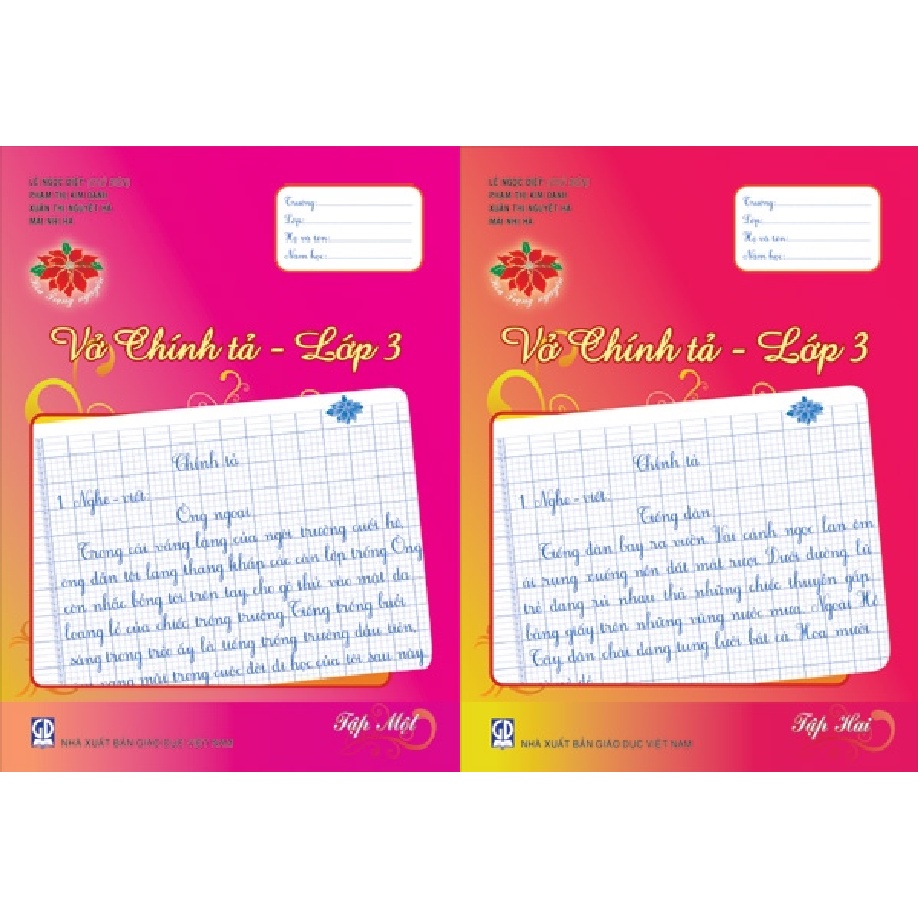 LÊ NGỌC ĐIỆP
PHẠM THỊ KIM OANH
XUÂN THỊ NGUYỆT HÀ
MAI NHỊ HÀ
Trường:
Lớp:
Họ và tên:
Năm học:
Hoa Trạng nguyên
Vở Chính tả - Lớp 3
Chính tả
1. Nghe - viết:
Ông ngoại
Trong cái vắng lặng của ngôi trường cuối hè,
ông dẫn tôi lang thang khắp các căn lớp trống. Ông
còn nhấc bổng tôi trên tay, cho gõ thử vào mặt da
loang lổ của chiếc trống trường. Tiếng trống buổi
sáng trong trẻo ấy là tiếng trống trường đầu tiên,
vang mãi trong cuộc đời đi học của tôi sau này.
GD
NHÀ XUẤT BẢN GIÁO DỤC VIỆT NAM
Tập Một
LÊ NGỌC ĐIỆP
PHẠM THỊ KIM OANH
XUÂN THỊ NGUYỆT HÀ
MAI NHỊ HÀ
Trường:
Lớp:
Họ và tên:
Năm học:
Hoa Trạng nguyên
Vở Chính tả - Lớp 3
Chính tả
1. Nghe - viết:
Tiếng đàn
Tiếng đàn bay ra vườn. Vài cánh ngọc lan êm
ái rụng xuống nền đất mát rượi. Dưới đường lũ
trẻ đang rủ nhau thả những chiếc thuyền gấp
bằng giấy trên những vũng nước mưa. Ngoài Hồ
Tây dân chài đang tung lưới bắt cá. Hoa mười
GD
NHÀ XUẤT BẢN GIÁO DỤC VIỆT NAM
Tập Hai